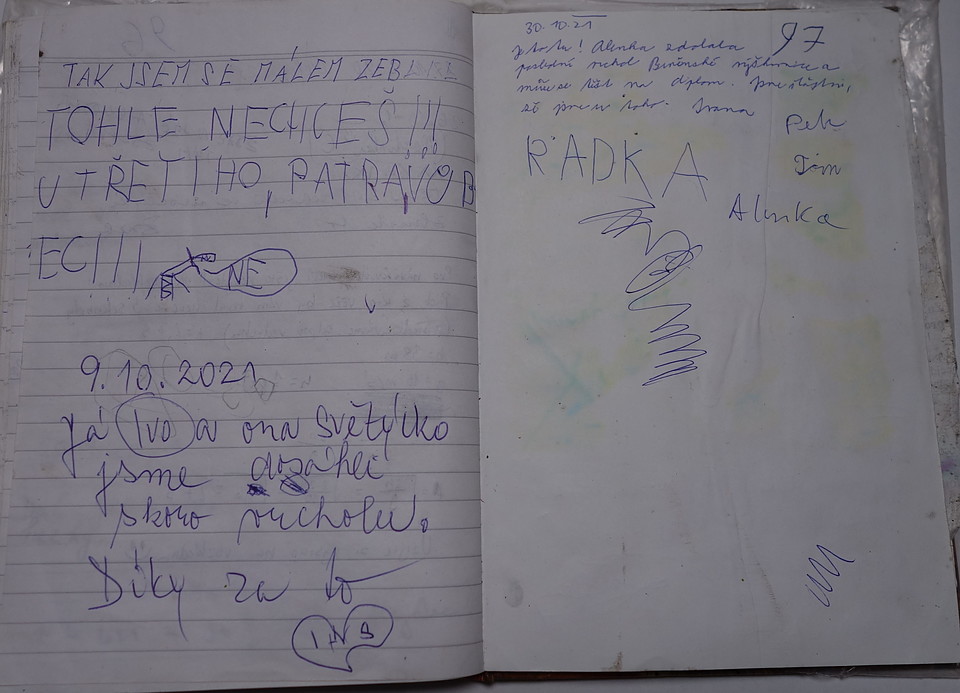 TAK JSEM SE MÁLEM ZEBLIL
TOHLE NECHCEŠ!!!
UTŘETÍHO, PATRAVÓB
ECI!!!
NE
9.10.2021
Já Ivo a ona Světýlko
jsme dosáhli
skoro vrcholu.
Díky za to
I S
30.10.21
Je to tu! Alenka zdolala
poslední vrchol Brněnské
může se těšit na diplom. Jsme šťastní,
že jsme u toho. Ivana
97
Petr
Tim
Alenka
RADKA